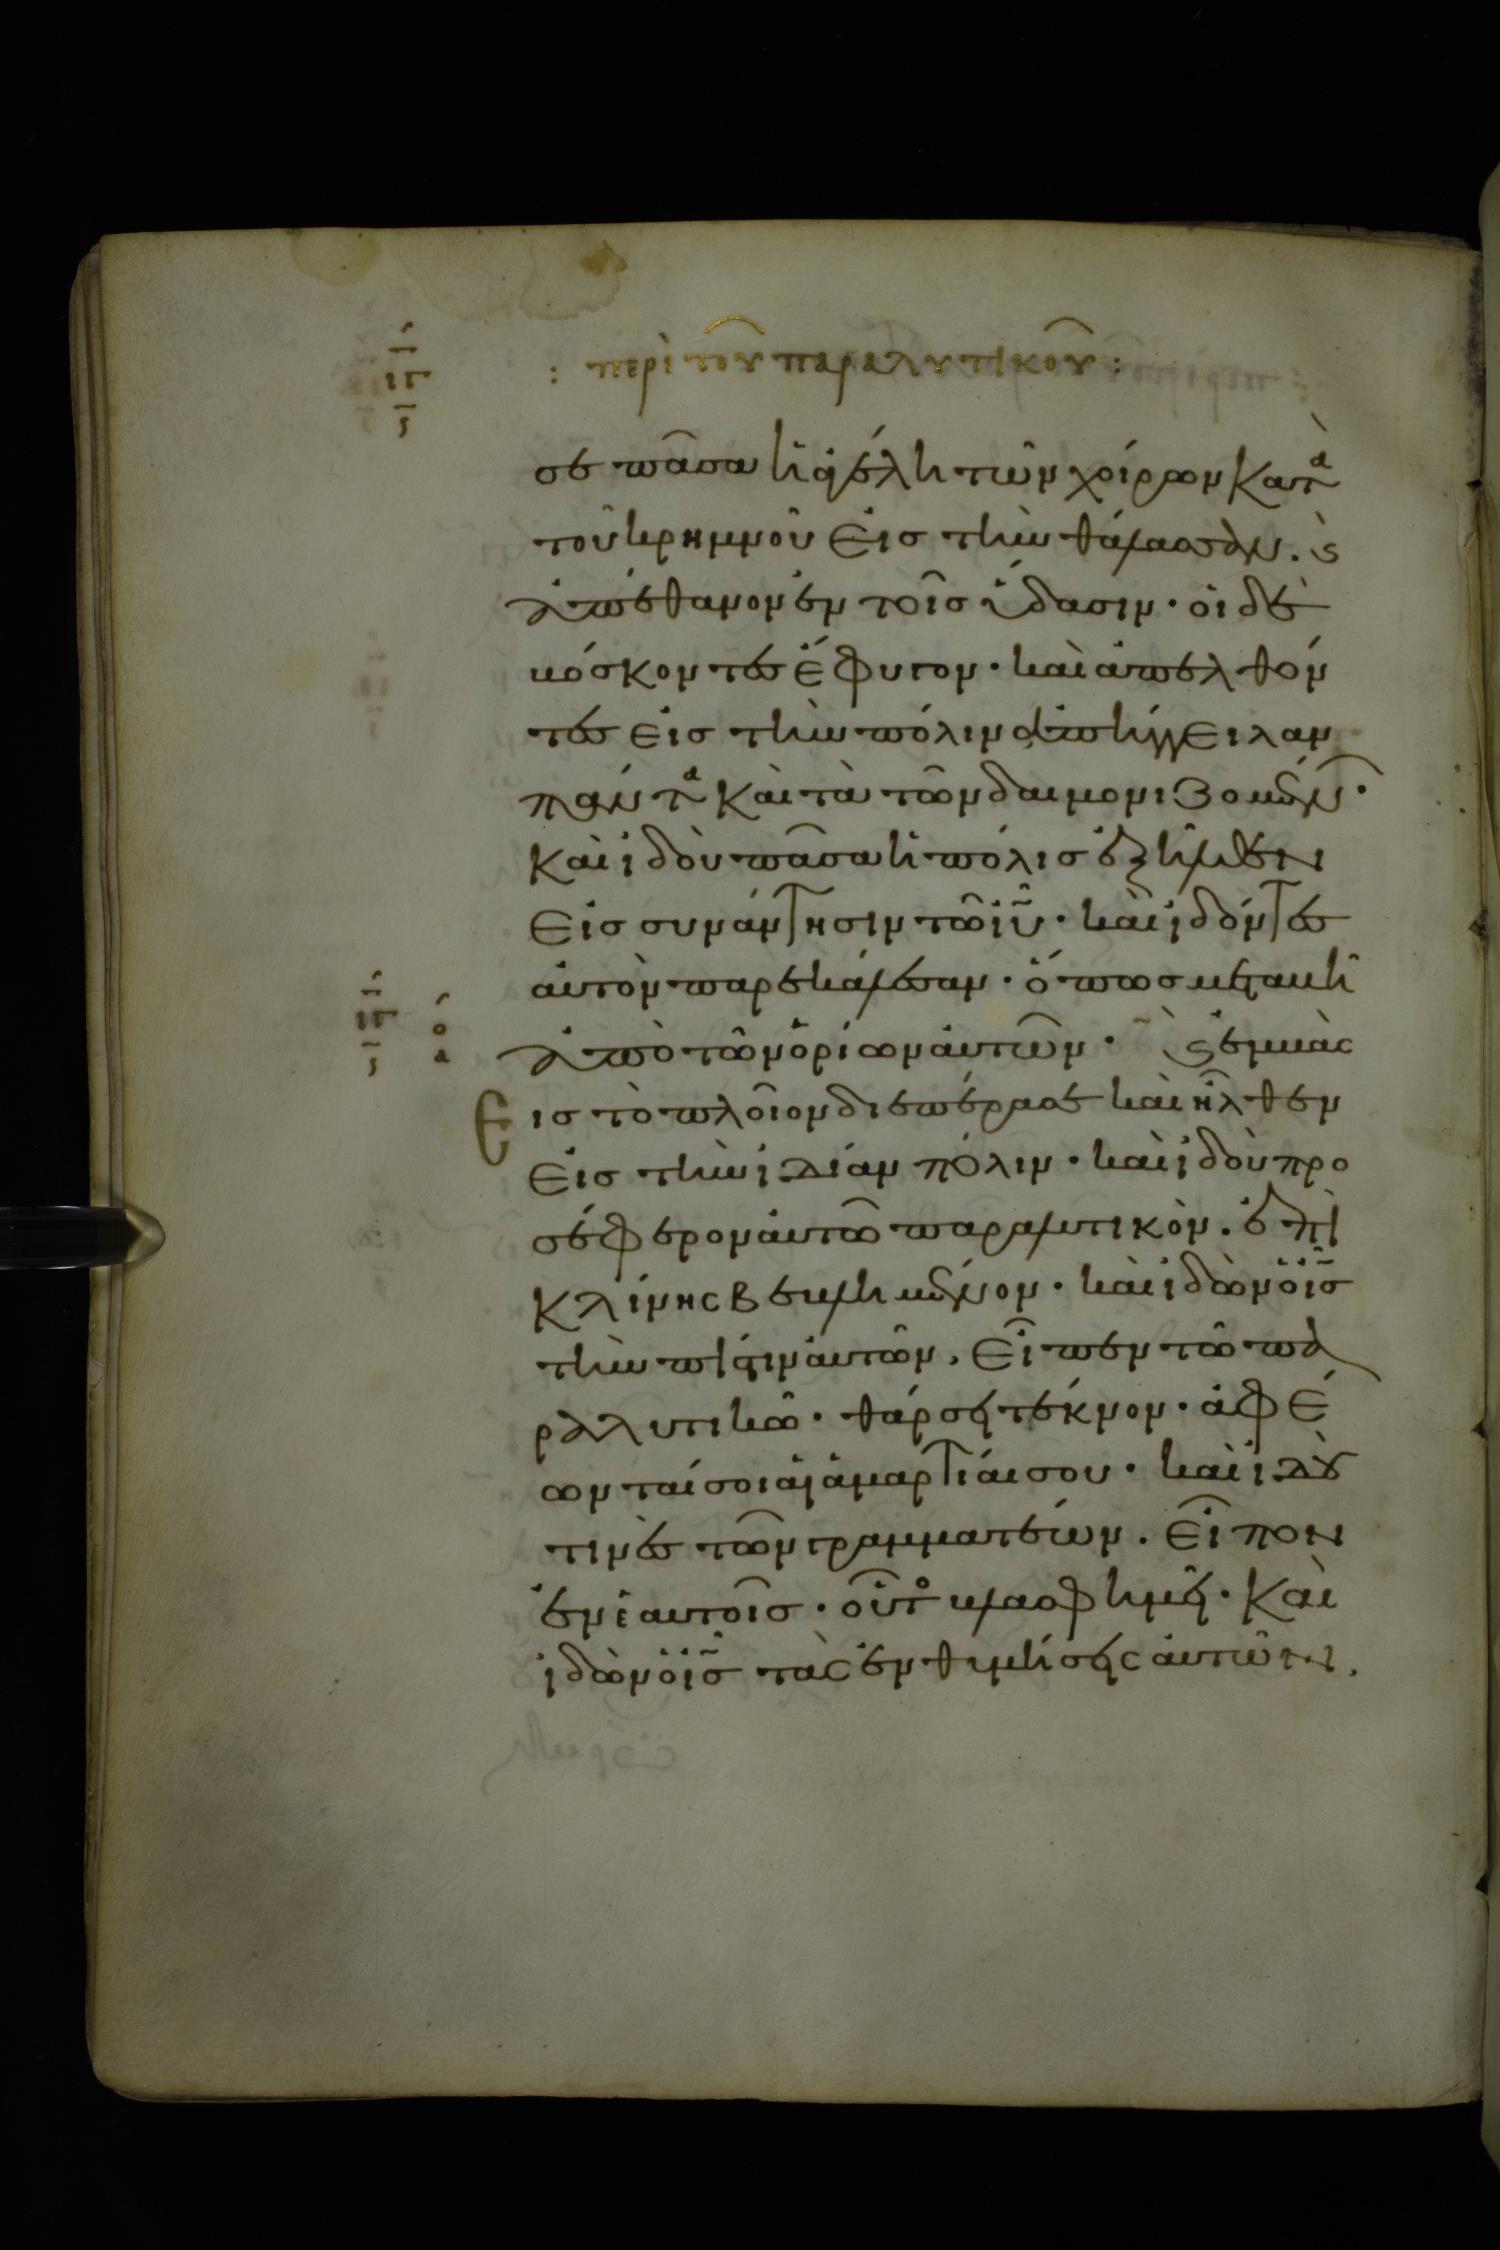 : περὶ τοῦ παραλυτικοῦ :
σε πᾶσα ἡ ἀγέλη τῶν χοίρων κατὰ
τοῦ κρημνοῦ εἰς τὴν θάλασσαν. ϛ̀
ἀπέθανον ἐν τοῖς ὕδασιν · οἱ δὲ
βόσκοντες ἔφυγον · καὶ ἀπελθόν
τες εἰς τὴν πόλιν ἀπήγγειλαν
πάντα καὶ τὰ τῶν δαιμονιζομένων ·
καὶ ἰδοὺ πᾶσα ἡ πόλις ἐξῆλθεν
εἰς συνάντησιν τῶ ἰῦ · καὶ ἰδόντες
αὐτὸν παρεκάλεσαν · ὅπως μεταβῆ
ἀπὸ τῶν ὁρίων αὐτῶν · ϛ̀ ἐμβὰς
εἰς τὸ πλοῖον διεπέρασε καὶ ἦλθεν
εἰς τὴν ἰδίαν πόλιν · καὶ ἰδοὺ προ
σέφερον αὐτῶ παραλυτικὸν. ἐπὶ
κλίνης βεβλημένον · καὶ ἰδὼν ὁ ἰς
τὴν πίστιν αὐτῶν. εἶπεν τῶ πα
ραλυτικῶ · θάρσει τέκνον · ἀφέ
ωνταί σοι αἱ ἁμαρτίαι σου · καὶ ἰδοὺ
τινὲς τῶν γραμματέων. εἶπον
ἐν ἑαυτοῖς · οὗτος βλασφημεῖ · καὶ
ἰδὼν ὁ ἰς τὰς ἐνθυμήσεις αὐτῶν.